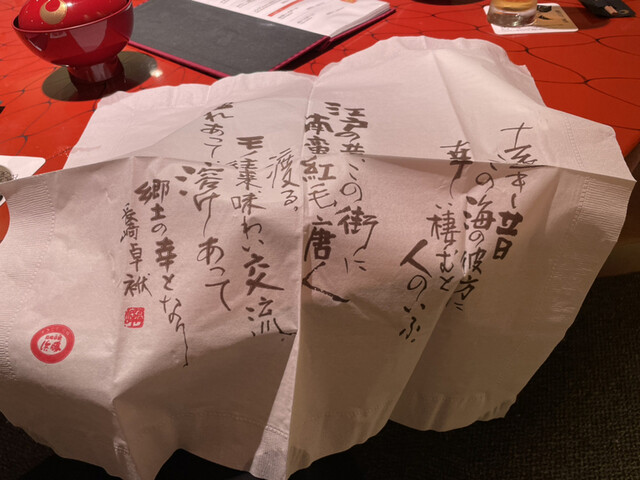 遠き昔
この海の彼方に
幸い棲むと
人のいふ。
江戸の世、この街に
南蛮紅毛唐人
渡る。
味わい交流。
れあって
溶けあって
郷土の幸となりし
長崎卓袱